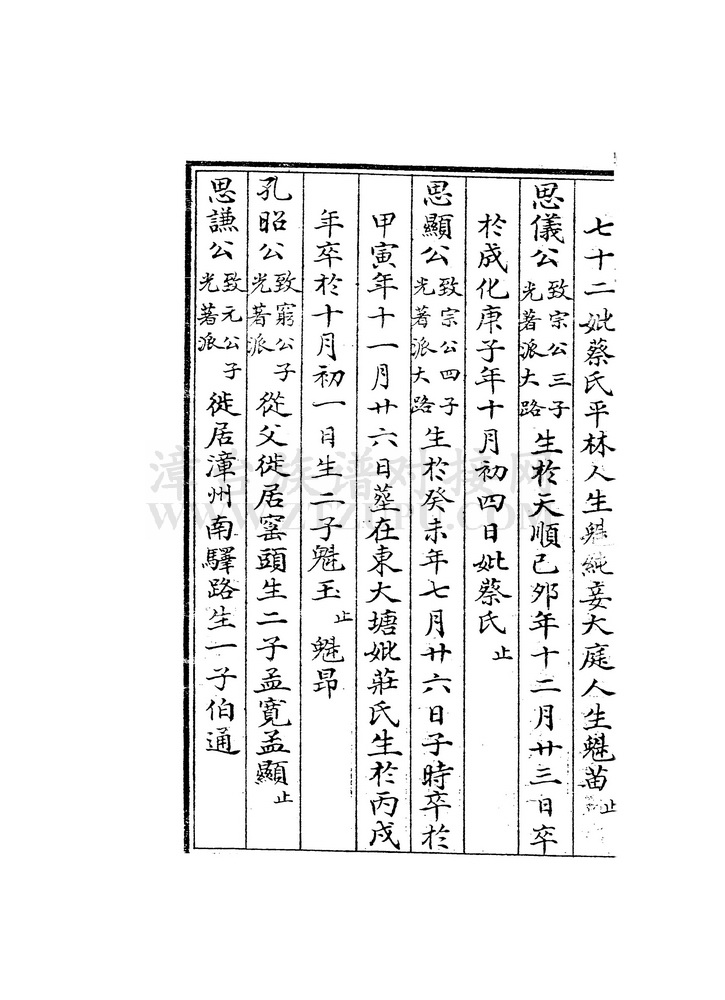 七十二妣蔡氏平林人生魁純妾大庭人生魁苗止
思儀公致宗公三子光著派大路生於天順己卯年十二月廿三日卒
於成化庚子年十月初四日妣蔡氏止
思顯公致宗公四子光著派大路生於癸未年七月廿六日子時卒於
甲寅年十一月廿六日塟在東大塘妣莊氏生於丙戌
年卒於十月初一日生二子魁玉止魁昂
孔昭公致窮公子光著派從父徙居窰頭生二子孟寬孟顯止
思謙公致元公子光著派徙居漳州南驛路生一子伯通
漳台族谱对接网
WWW.ZTZUPU.COM